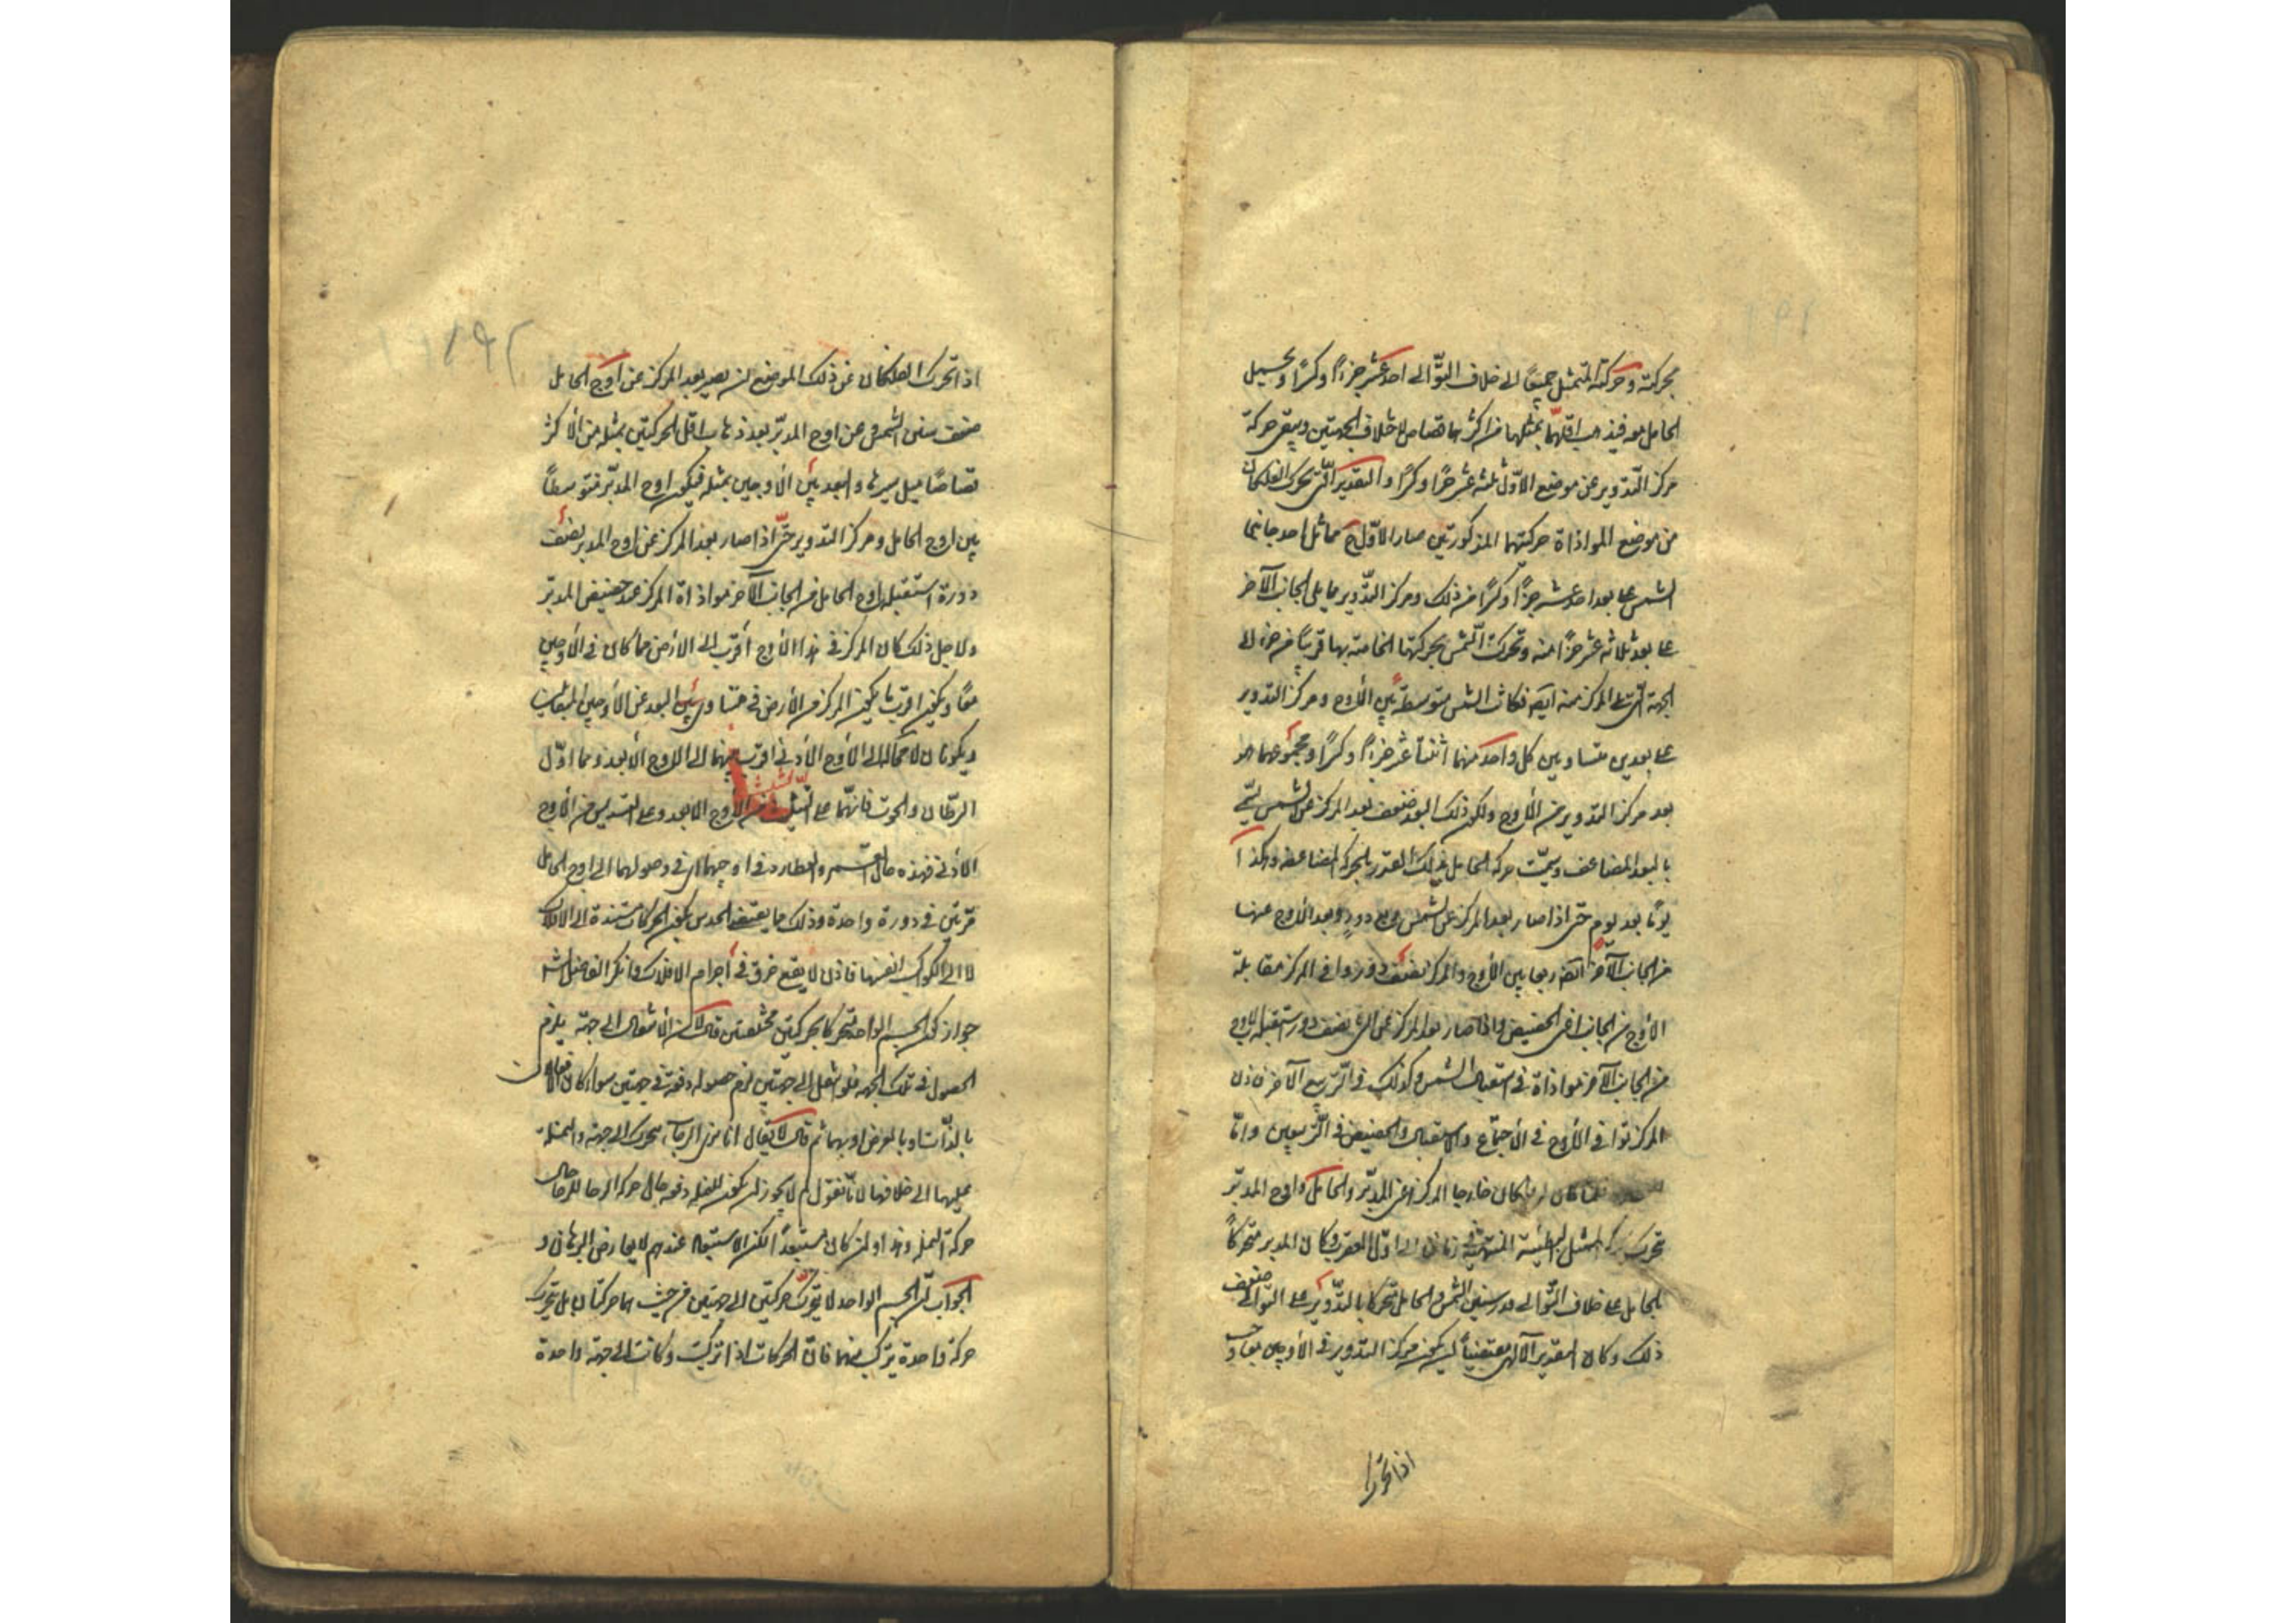 بحركته وحركة المتمثل جميعاً الى خلاف التوالى احد عشر جزءاً وكسراً ويميل
الحامل معه فيذهب اقلهما بمثلها من اكثرهما قصاصا لاختلاف الجهتين ويبقى حركة
مركز التدوير عن موضع الاول ثلثه عشر جزءاً وكسراً والتقدير انه تحرك الفلكان
من موضع الموازاة حركتهما المذكورتين صار الاوج مماثل احد جانبى
الشمس على بعد احد عشر جزءاً وكسراً من ذلك ومركز التدوير مما يلى الجانب الآخر
على بعد ثلاثه عشر جزءاً منه وتحركت الشمس بحركتها الخاصة بها قريباً من جزء الى
الجهة التى تلى المركز منه ايضه فكانت الشمس متوسطة بين الاوج ومركز التدوير
على بعدين متساويين كل واحد منهما اثنتا عشر جزءاً وكسراً ومجموعهما هو
بعد مركز التدوير عن الاوج ولكون ذلك البعد ضعف بعد المركز عن الشمس سمى
بالبعد المضاعف وسميت حركة الحامل بذلك القدر بالحركة المضاعفه وهكذا
يوماً بعد يوم حتى اذا صار بعد المركز عن الشمس ربع دور وبعد الاوج عنها
من الجانب الآخر ايضه ربعا بين الاوج والمركز نصف دور ووافى المركز مقابلة
الاوج من الجانب اعنى الحضيض واذا صار بعد المركز عن الشمس نصف دور استقبله الاوج
من الجانب الآخر موازاة فى استقبال الشمس وكذلك فى التربيع الآخر فاذن
المركز توافى الاوج فى الاجتماع والاستقبال والحضيض فى التربيعين وانا
كان خارجا المركز اعنى المدير والحامل واوج المدير
تحرك بحركة الممثل البطيئة المنتهية فى زماننا الى اول العقرب وكان المدير متحركاً
بالحامل على خلاف التوالى قدر سنى الشمس والحامل متحركا بالتدوير على التوالى ضعف
ذلك وكان التقدير الآلهى مقتضياً لان يكون مركز التدوير فى الاوجين معاً وجب
اذا تحرك
اذا تحرك الفلكان عن ذلك الموضع ان يصير بعد المركز عن اوج الحامل
ضعف سنى الشمس وعن اوج المدير بعد ذهاب اقل الحركتين بمثله من الاكثر
قصاصاً مثل سيرها والبعد بين الاوجين بمثله فيكون اوج المدير متوسطاً
بين اوج الحامل ومركز التدوير حتى اذا صار بعد المركز عن اوج المدير نصف
دورة استقبله اوج الحامل من الجانب الآخر موازاة المركز عند حضيض المدير
ولاجل ذلك كان المركز فى هذا الاوج اقرب الى الارض مما كان فى الاوجين
معًا ويكون اقرب ما يكون المركز من الارض فى متساويى البعد عن الاوجين المتقابلين
ويكونان لا محالة الى الاوج الادنى اقرب منهما الى الاوج الابعد وهما اول
السرطان والحوت فانهما على التثليث من الاوج الابعد وعلى التسديس من الاوج
الادنى فهذه حال القمر والعطارد فى اوجهما اى فى وصولهما الى اوج الحامل
مرتين فى دورة واحدة وذلك مما يقتضى الحدس بكون الحركات مستندة الى الافلاك
لا الى الكواكب انفسها فاذن لا يقع خرق فى اجرام الافلاك وانكر الفاضل الشا
جواز كون الجسم الواحد متحركا بحركتين مختلفتين قال لان الانتقال الى جهة يلزم
الحصول فى تلك الجهة فلو انتقل الى جهتين لزم حصوله دفعة فى جهتين سواء كان الانتقالان
بالذات او بالعرض او بهما ثم قال لا يقال انا نرى الرحاء يتحرك الى جهة والنملة
عليها الى خلافها لانا نقول لم لا يجوز ان يكون للنملة وقفه حال حركة الرحا وللرحا حال
حركة النملة وهذا وان كان مستبعداً لكن الاستبعاد عندهم لا يعارض البرهان و
الجواب ان الجسم الواحد لا يتحرك حركتين الى جهتين من حيث هما حركتان بل يتحرك
حركة واحدة يتركب منهما فان الحركات اذا تركبت وكانت الى جهة واحدة